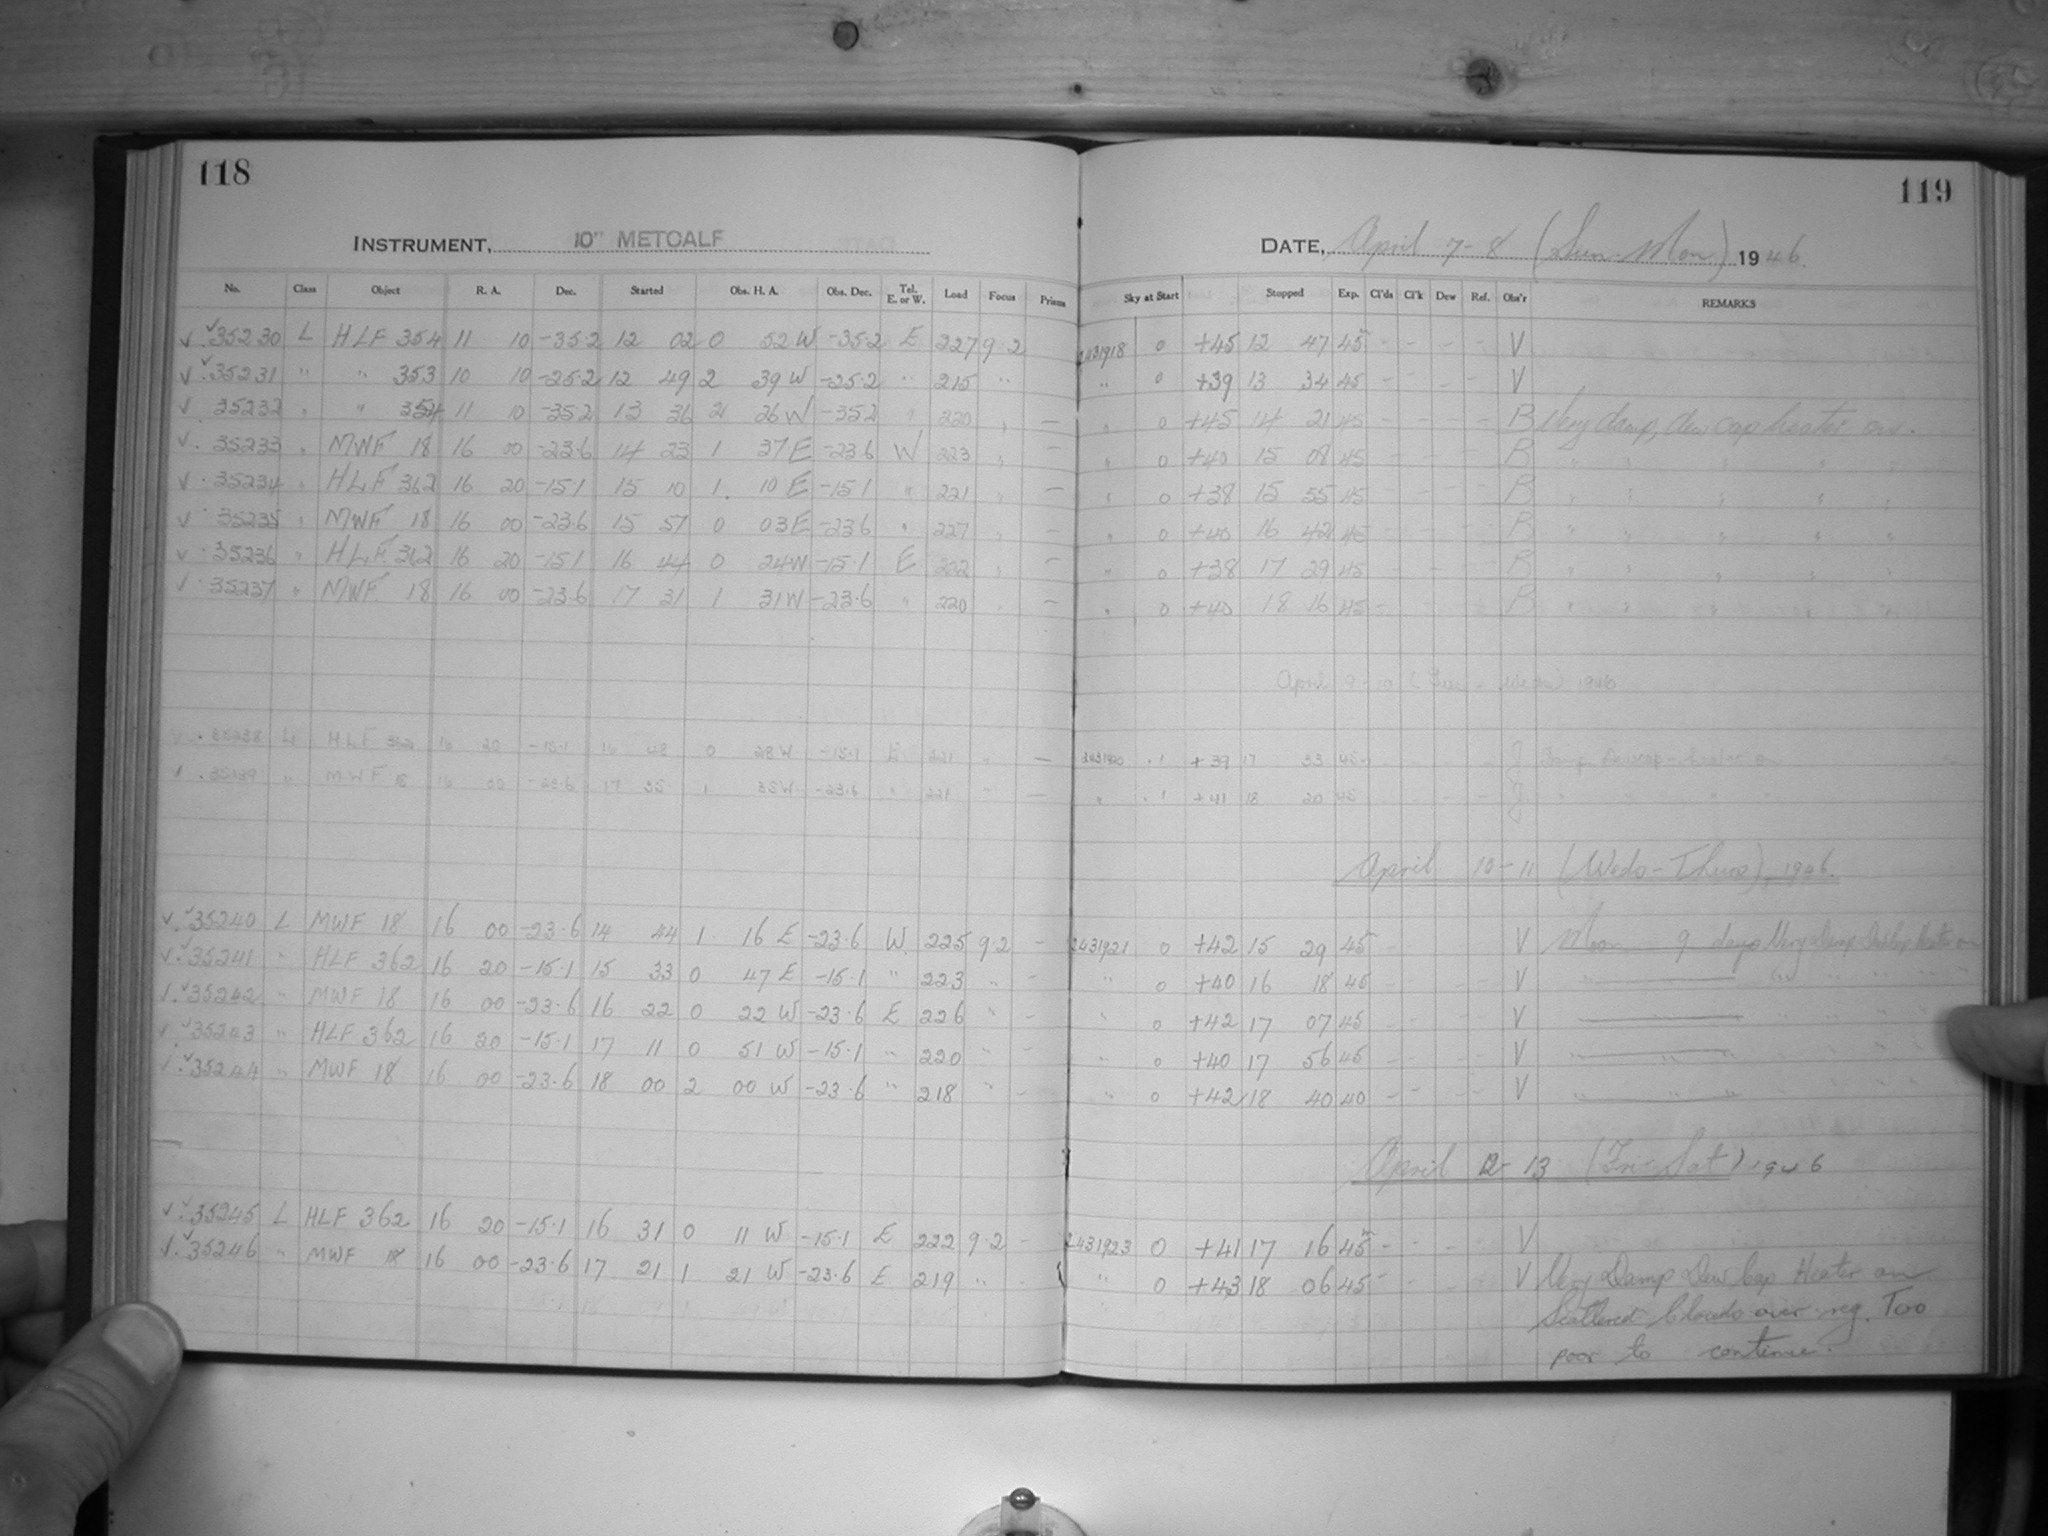 118
INSTRUMENT, 10" METCALF
No. Class Object R. A. Dec. Started Obs. H. A. Obs. Dec. Tel. E. or W. Load Focus Prisms
√ √35230 L HLF 354 11 10 -35.2 12 02 0 52 W -35.2 E 227 9.2
√ √35231 " " 353 10 10 -25.2 12 49 2 39 W -25.2 " 215 "
√ 35232 " " 354 11 10 -35.2 13 36 2 26 W -35.2 " 220 " –
√ 35233 " MWF 18 16 00 -23.6 14 23 1 37 E -23.6 W 223 " –
√ 35234 " HLF 362 16 20 -15.1 15 10 1 10 E -15.1 " 221 " –
√ 35235 " MWF 18 16 00 -23.6 15 57 0 03 E -23.6 " 227 " –
√ 35236 " HLF 362 16 20 -15.1 16 44 0 24 W -15.1 E 222 " –
√ 35237 " MWF 18 16 00 -23.6 17 31 1 31 W -23.6 " 220 " –
√ 35238 L HLF 362 16 20 -15.1 16 48 0 28 W -15.1 E 221 " –
√ 35239 " MWF 18 16 00 -23.6 17 35 1 35 W -23.6 " 221 " –
√ √35240 L MWF 18 16 00 -23.6 14 44 1 16 E -23.6 W 225 9.2 –
√ √35241 " HLF 362 16 20 -15.1 15 33 0 47 E -15.1 " 223 " –
√ √35242 " MWF 18 16 00 -23.6 16 22 0 22 W -23.6 E 226 " –
√ √35243 " HLF 362 16 20 -15.1 17 11 0 51 W -15.1 " 220 " –
√ √35244 " MWF 18 16 00 -23.6 18 00 2 00 W -23.6 " 218 " –
√ √35245 L HLF 362 16 20 -15.1 16 31 0 11 W -15.1 E 222 9.2 –
√ √35246 " MWF 18 16 00 -23.6 17 21 1 21 W -23.6 E 219 " –
119
DATE, April 7-8 (Sun-Mon) 1946.
Sky at Start Stopped Exp. Cl'ds Cl'k Dew Ref. Obs'r REMARKS
2431918 0 +45 12 47 45 – – – – V
" 0 +39 13 34 45 – – – – V
" 0 +45 14 21 45 – – – – B Very damp, dew cap heater on.
" 0 +40 15 08 45 – – – – B " " " " "
" 0 +38 15 55 45 – – – – B " " " " "
" 0 +40 16 42 45 – – – – B " " " " "
" 0 +38 17 29 45 – – – – B " " " " "
" 0 +40 18 16 45 – – – – B " " " " "
April 9-10 ( 1946
2431920 .1 +39 17 33 45 – – – – J Damp. Dewcap-heater on
" .1 +41 18 20 45 – – – – J " " " "
April 10-11 (Weds-Thurs), 1946.
2431921 0 +42 15 29 45 – – – – V Moon 9 days Very Damp Dew Cap Heater on
" 0 +40 16 18 45 – – – – V " " " " "
" 0 +42 17 07 45 – – – – V " " " " "
" 0 +40 17 56 45 – – – – V " " " " "
" 0 +42 18 40 40 – – – – V " " " " "
April 12-13 (Fri-Sat) 1946
2431923 0 +41 17 16 45 – – – – V
" 0 +43 18 06 45 – – – – V Very Damp Dew Cap Heater on
Scattered Clouds over reg. Too
poor to continue.